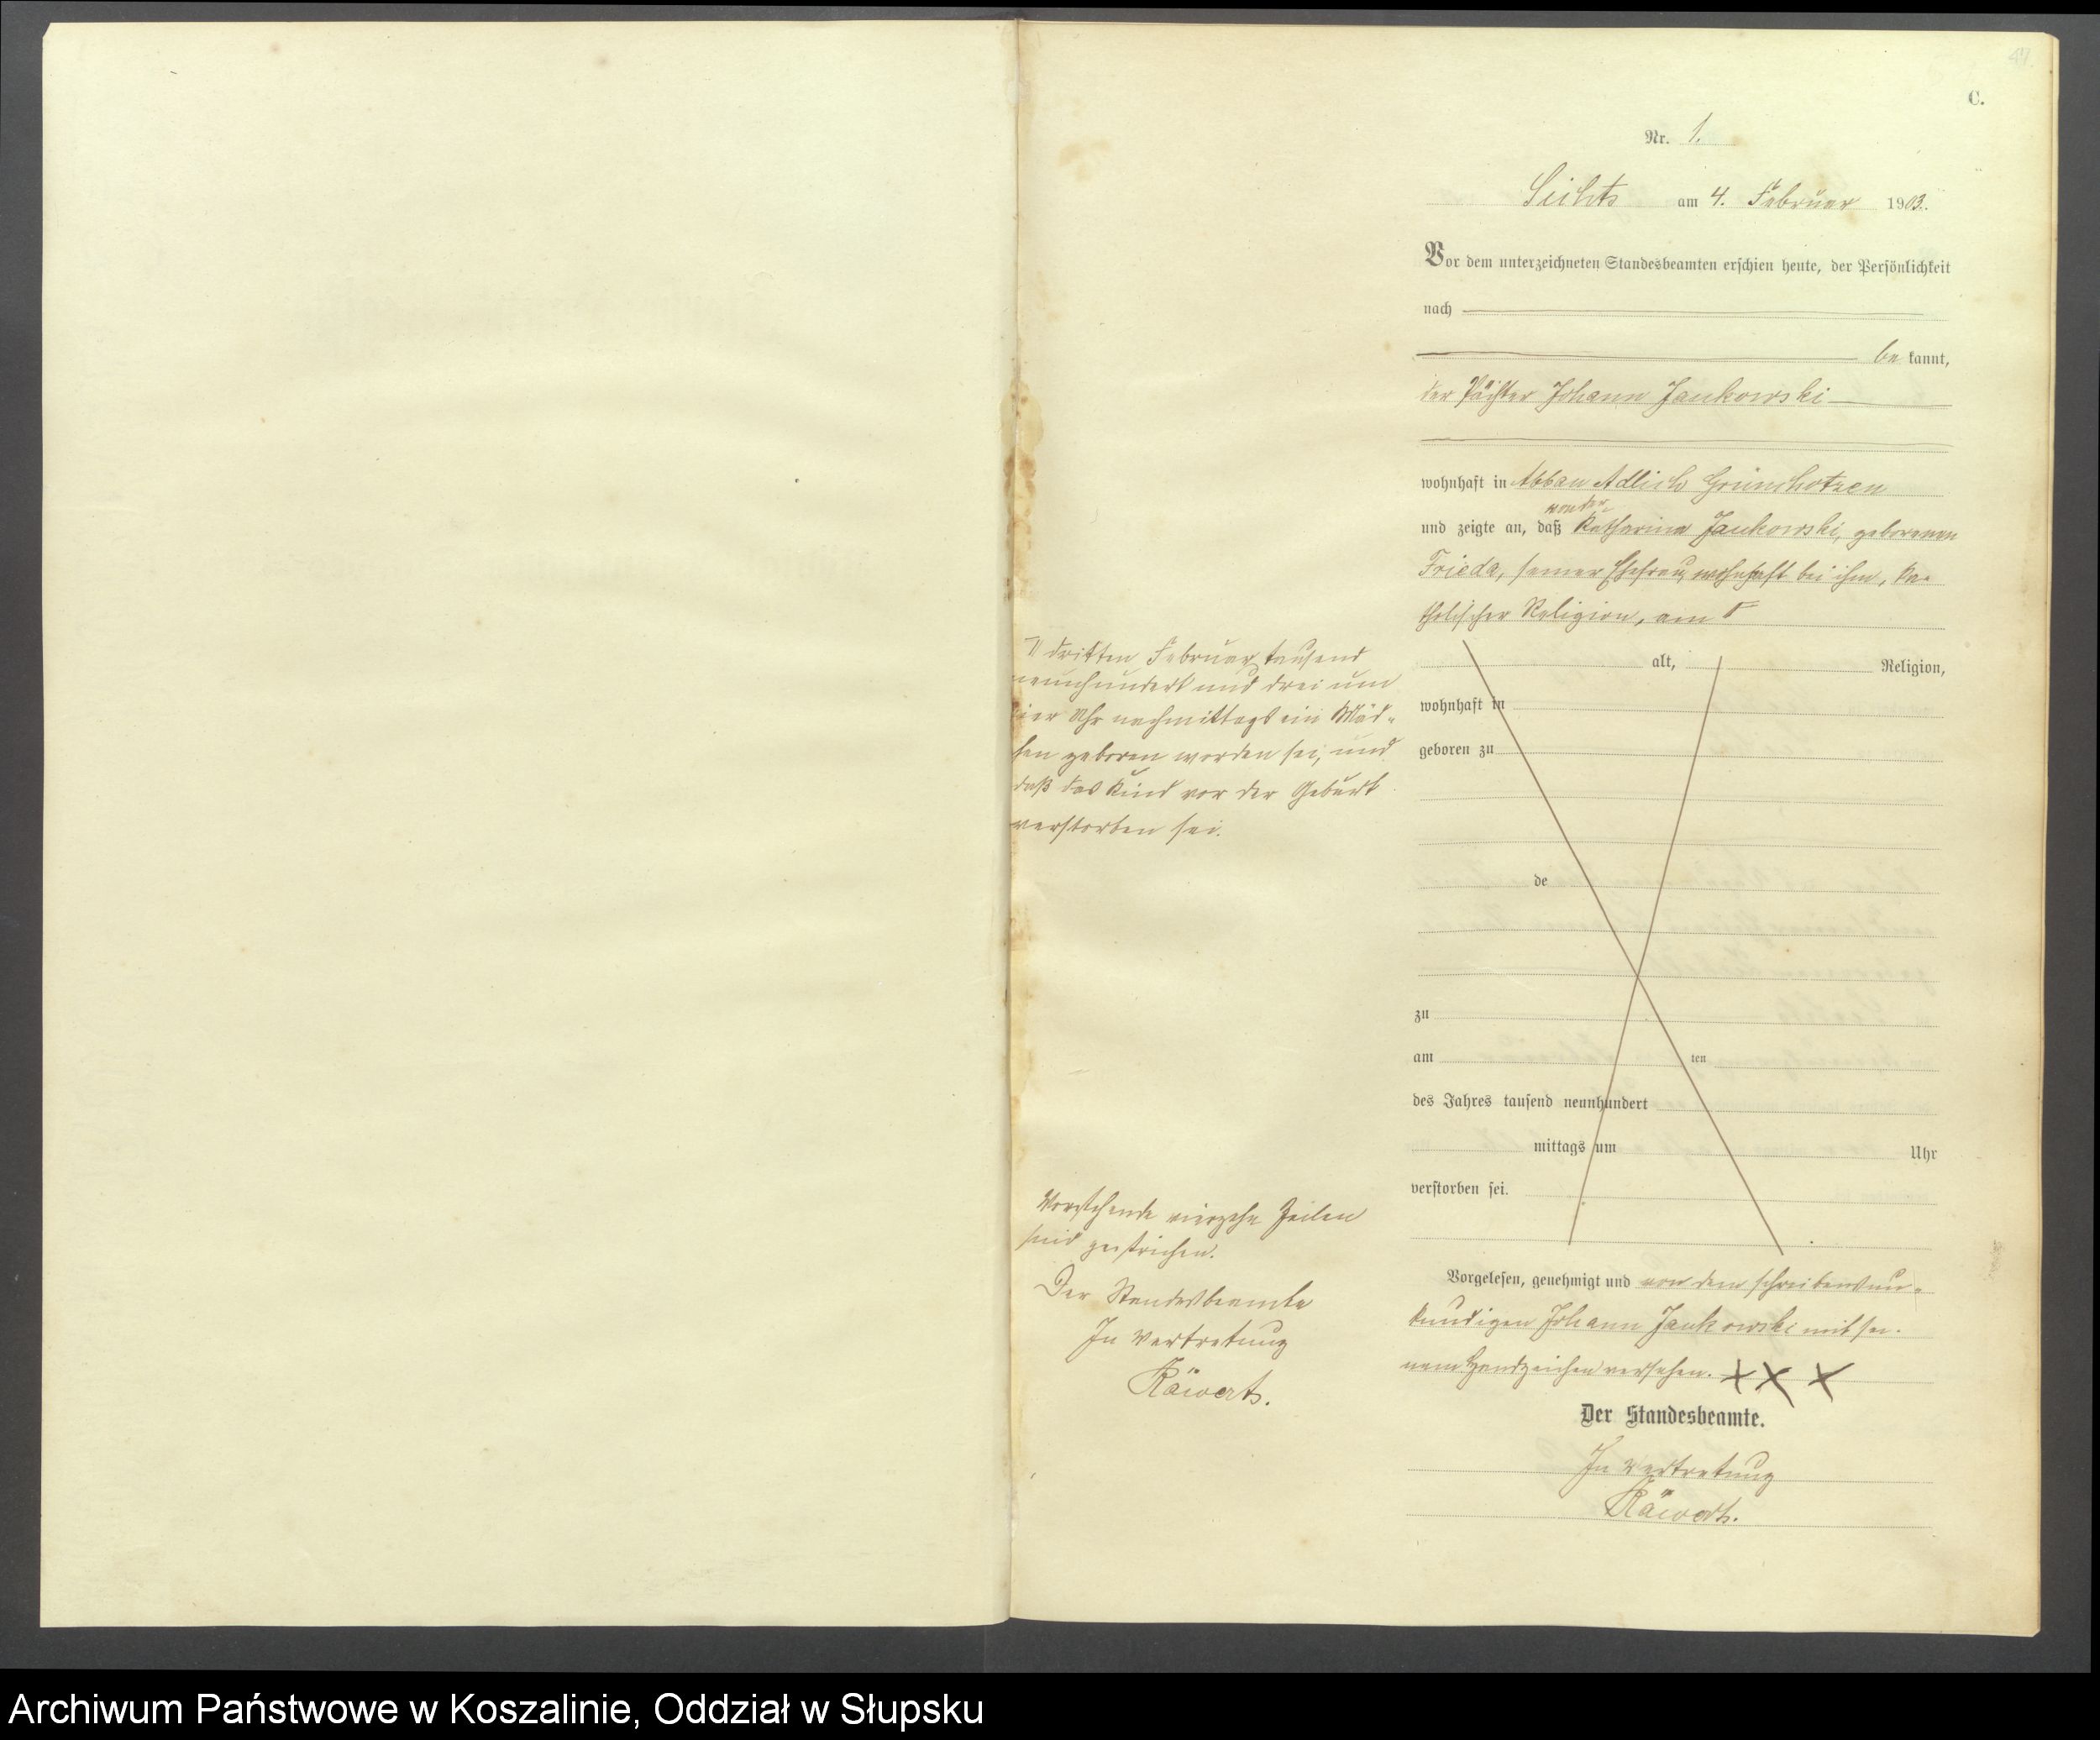 47.
C.
Nr. 1.
Lichts am 4. Februar 1903.
Vor dem unterzeichneten Standesbeamten erschien heute, der Persönlichkeit
nach
be kannt,
der Pächter Johann Jankowski
wohnhaft in Abbau Adlich Grünchotzen
von der
und zeigte an, daß Katharina Jankowski, geborenen
Frieda, seiner Ehefrau, wohnhaft bei ihm, ka-
tholischer Religion, am
dritten Februar tausend
neunhundert und drei um
vier Uhr nachmittags ein Mäd-
chen geboren worden sei, und
daß das Kind vor der Geburt
verstorben sei.
alt, Religion,
wohnhaft in
geboren zu
de
zu
am ten
des Jahres tausend neunhundert
mittags um Uhr
verstorben sei.
Vorstehende vierzehn Zeilen
sind gestrichen.
Der Standesbeamte
In Vertretung
Räwert.
Vorgelesen, genehmigt und von dem schreibensun-
kundigen Johann Jankowski mit sei-
nem Handzeichen versehen. XXX
Der Standesbeamte.
In Vertretung
Räwert.
Archiwum Państwowe w Koszalinie, Oddział w Słupsku